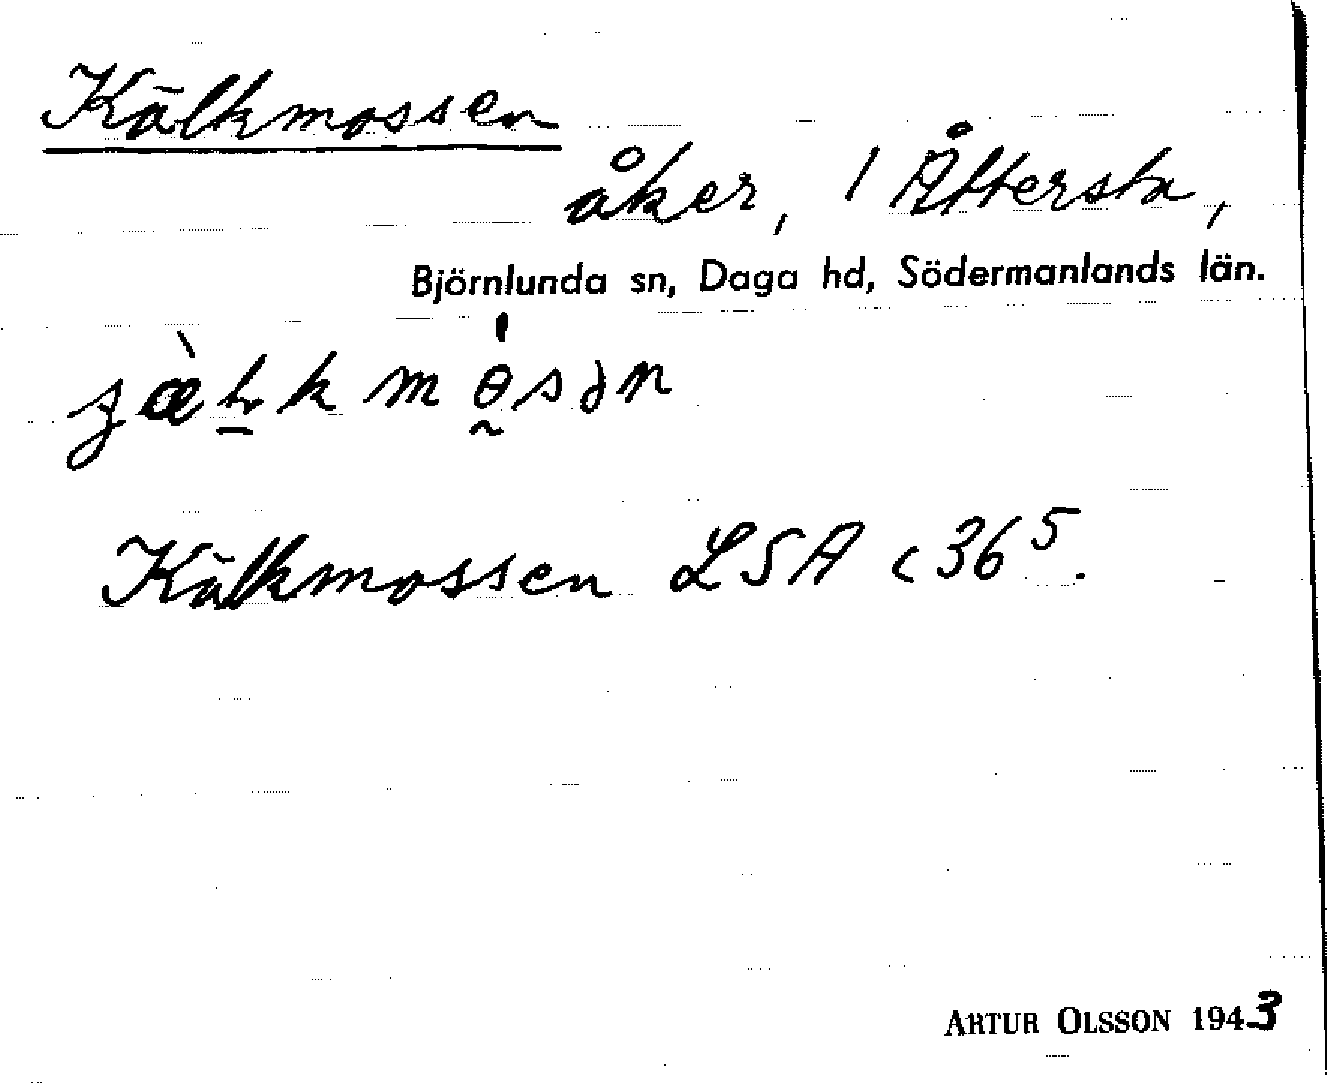 Kälkmossen
åker, 1 Åttersta,
Björnlunda sn, Daga hd, Södermanlands län.
Kälkmossen LSA c 36⁵.
ARTUR OLSSON 1943